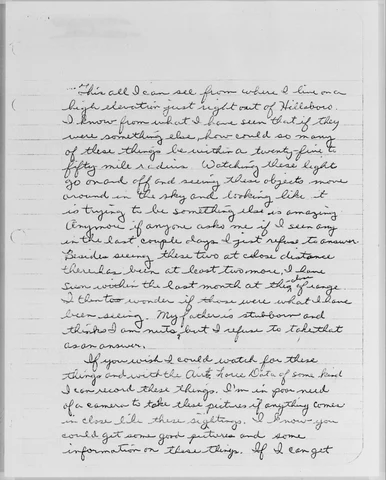 This all I can see from where I live on a
high elevation just right out of Hillsboro.
I know from what I have seen that if they
were something else how could so many
of these things be within a twenty five to
fifty mile radius. Watching these light
go on and off and seeing these objects move
around in the sky and looking like it
is trying to be something else is amazing
Anymore if anyone asks me if I seen any
in the last couple days I just refuse to answer.
Besides seeing these two at close distance
there has been at least two more, I have
seen within the last month at the range
I wonder if those were what I have
been seeing. My father is stubborn and
thinks I am nuts, but I refuse to take that
as an answer.
If you wish I could watch for these
things and with the Data of some kind
I can record these things. I'm in poor need
of a camera to take these pictures if anything comes
in close like these sightings. I know you
could get some good pictures and some
information on these things. If I can get